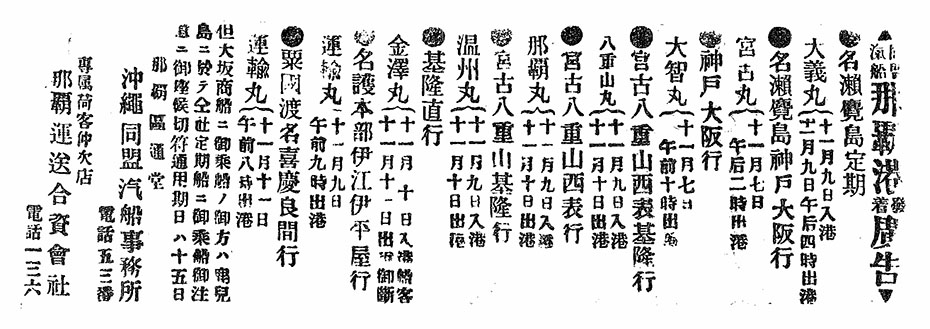 ▲汽船那覇港發着廣告▼
●名瀬覺島定期
大義丸(十一月九日入港
十一月九日午后四時出港
●名瀬覺島神戸大阪行
宮古丸(十一月七日
午后二時出港
●神戸大阪行
大智丸(十一月七日
午前十時出港
●宮古八重山西表基隆行
八重山丸(十一月九日入港
十一月十日出港
●宮古八重山西表行
那覇丸(十一月九日入港
十一月十日出港
●宮古八重山基隆行
温州丸(十一月九日入港
十一月十日出港
●基隆直行
金澤丸(十一月十日入港船客
十一月十一日出港御斷
●名護本部伊江伊平屋行
運輸丸(十一月九日
午前九時出港
●粟國渡名喜慶良間行
運輸丸(十一月十一日
午前八時出港
但大坂商船ニ御乘船ノ御方ハ鹿兒
島ニ於テ仝社定期船ニ御乘船御注
意ニ御座候切符通用期日ハ十五日
那覇區通堂
沖繩同盟汽船事務所
電話五三番
専属荷客仲次店
那覇運送合資會社
電話一三六